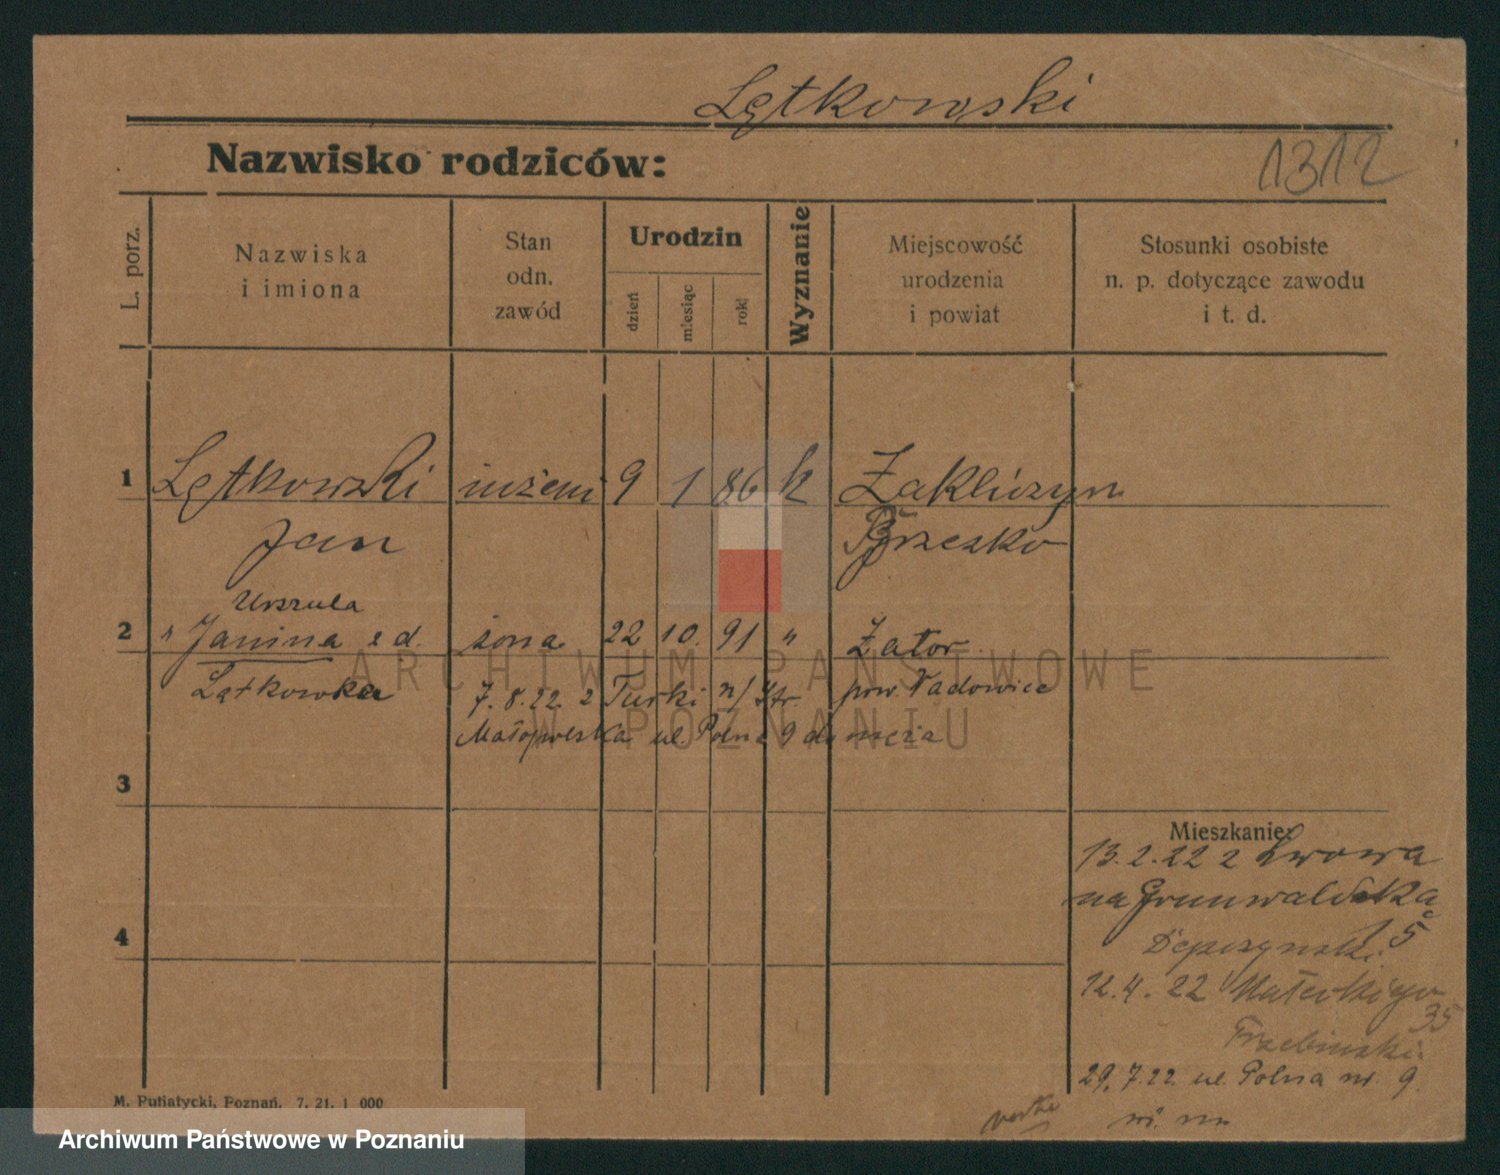 Lętkowski
Nazwisko rodziców:
1312
L. porz.
Nazwiska
i imiona
Stan
odn.
zawód
Urodzin
dzień
miesiąc
rok
Wyznanie
Miejscowość
urodzenia
i powiat
Stosunki osobiste
n. p. dotyczące zawodu
i t. d.
1 Lętkowski inżeni 9 1 86 k Zakliczyn
Jan Brzesko
Urszula
2 " Janina z d. żona 22 10. 91 " Zator
Łątkowska 7.8.22 z Turki n/Str. pow. Wadowice
Małopolska ul. Polna 9 do męża
3
4
Mieszkanie:
13.2.22 z Lwowa
na Grunwaldzka
5
12.4.22 Małeckiego
35
Trzebiński
29.7.22 ul. Polna nr. 9.
M. Putiatycki, Poznań. 7. 21. 1 000
ARCHIWUM PAŃSTWOWE
W POZNANIU
Archiwum Państwowe w Poznaniu